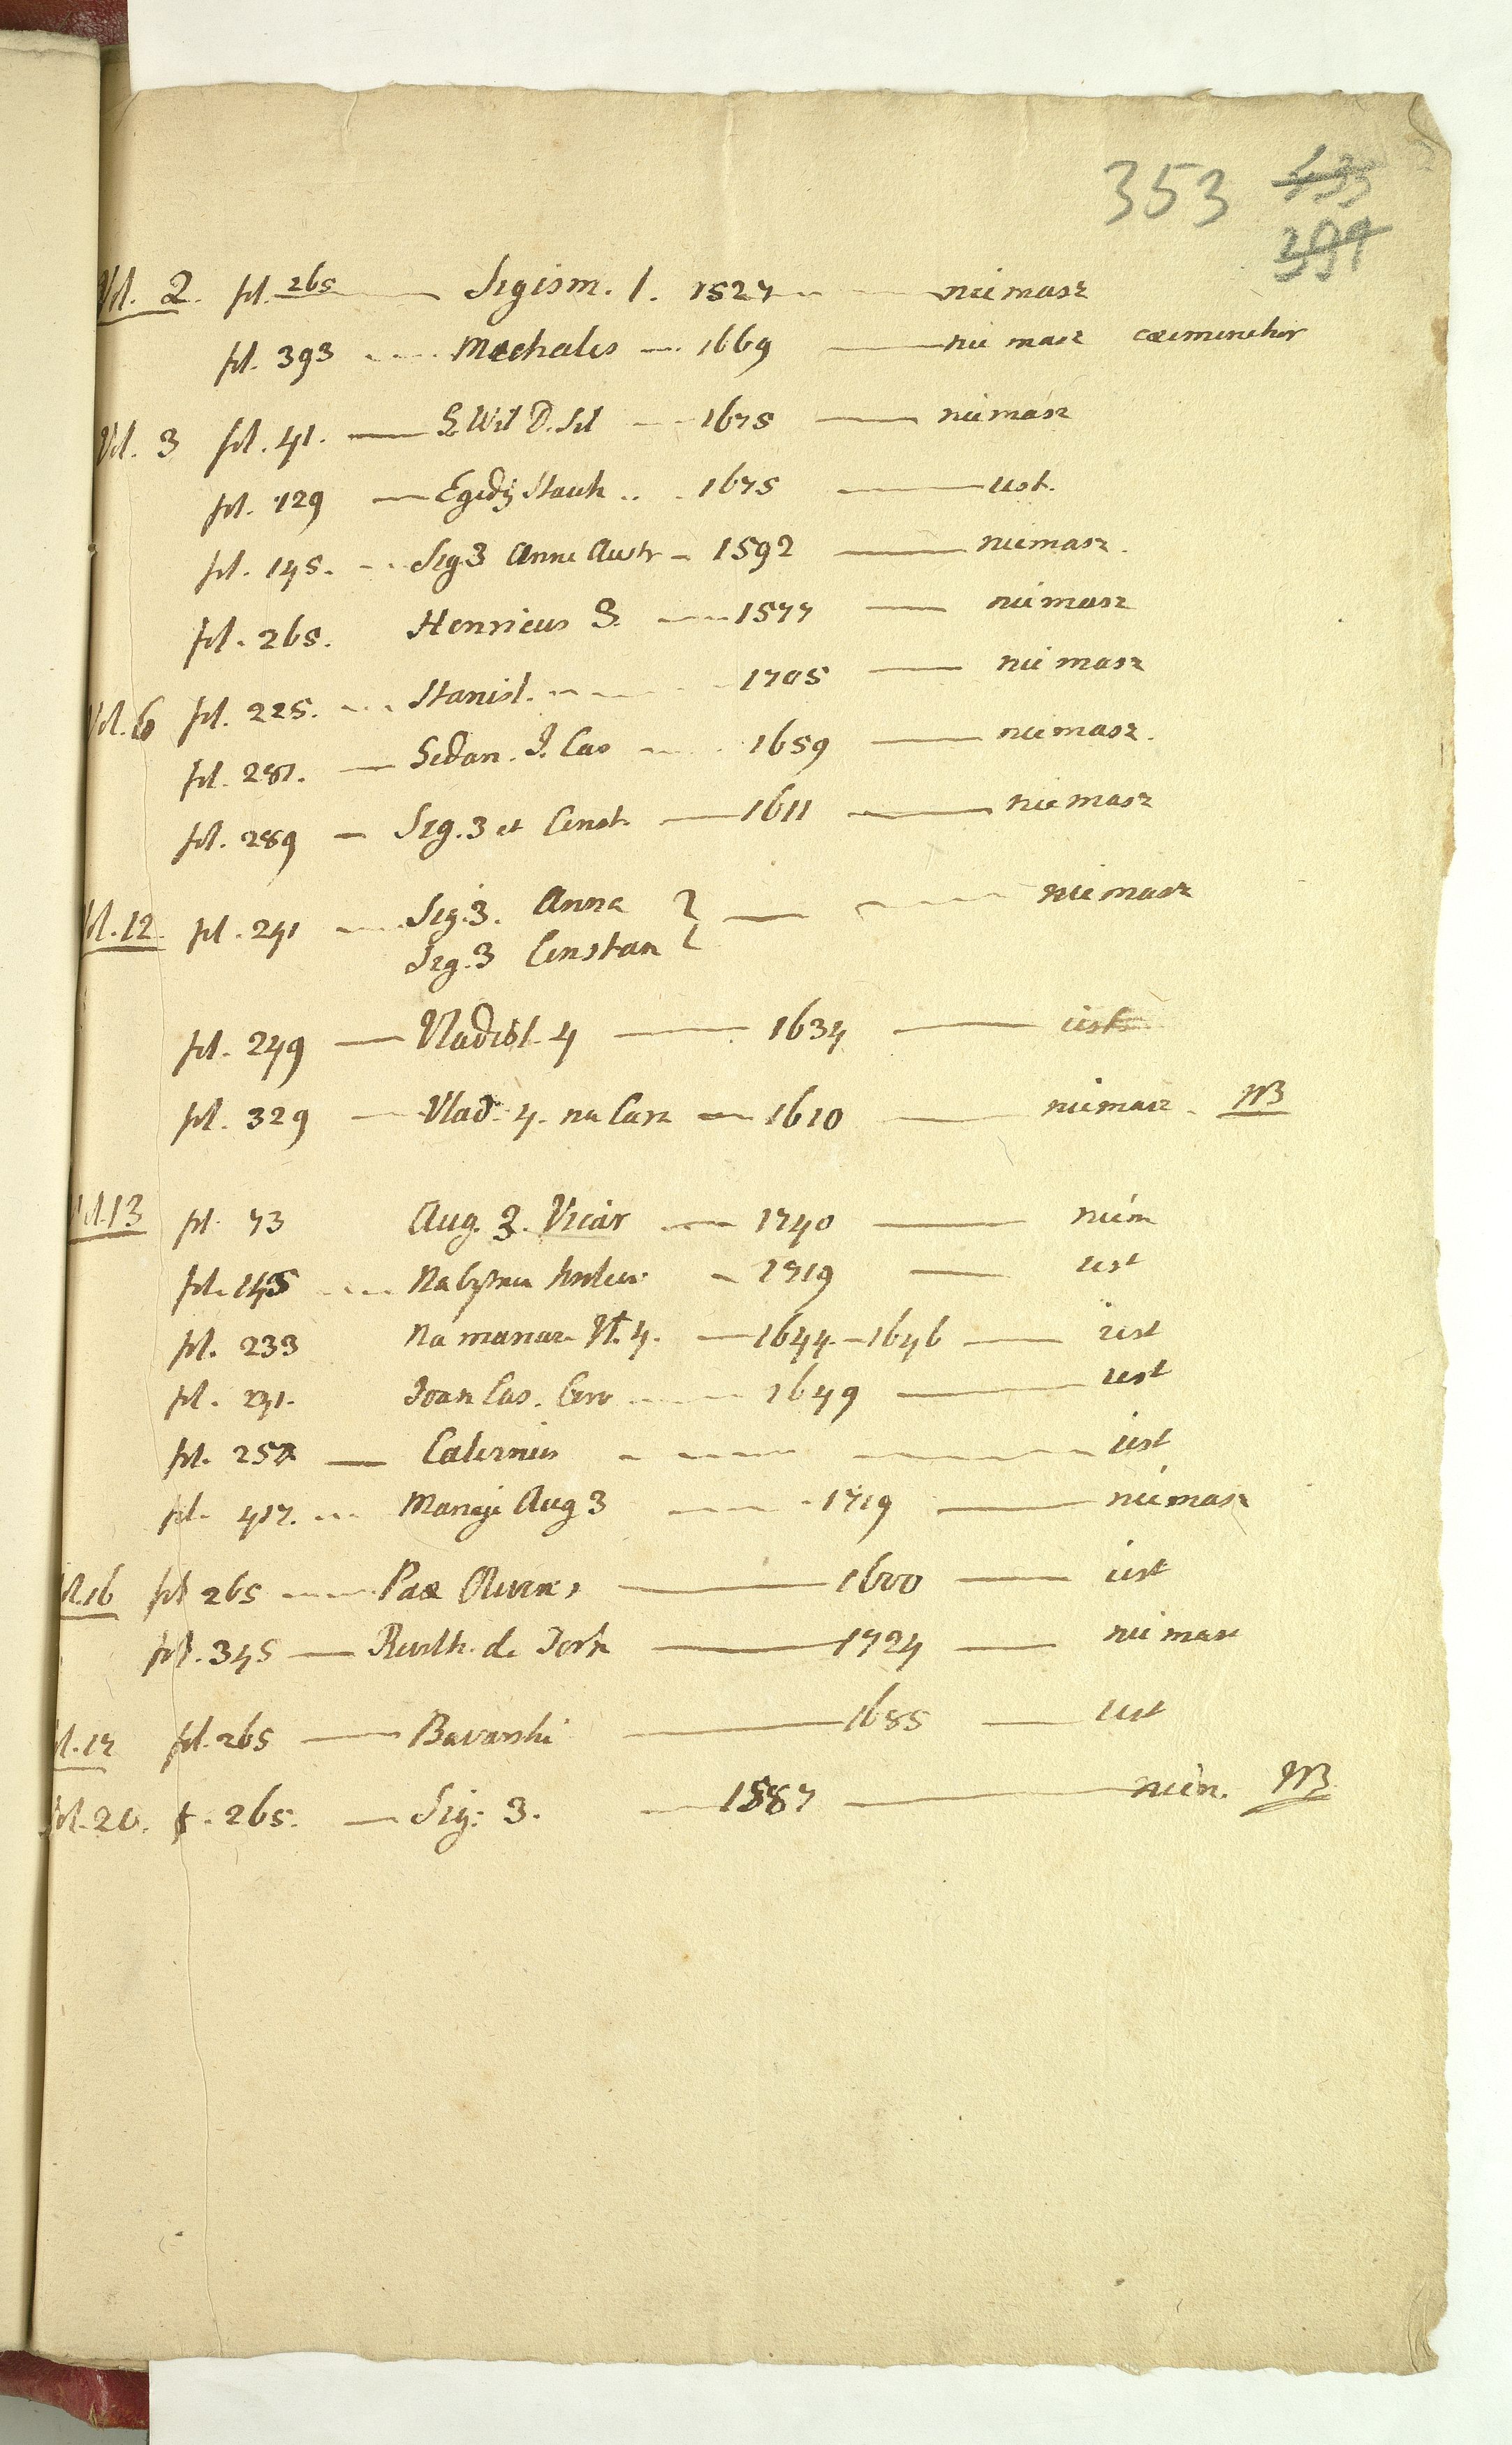 353 433
391
Vol. 2. fol. 265 Sigism. 1. 1527 niemasz
fol. 393 Mechales 1669 nie masz
Vol. 3 fol. 41. G Wil D. Sil 1675 niemasz
fol. 129 Egidÿ Stauh 1675 iest.
fol. 145. Sig 3 Anne Austr 1592 niemasz.
fol. 265. Henricus 3. 1577 niemasz
Vol. 6 fol. 225. Stanisl. 1705 nie masz
fol. 281. Sedan. J. Cas 1659 niemasz.
fol. 289 Sig. 3 et Const. 1611 niemasz
Vol. 12. fol. 241 Sig. 3. Anna niemasz
Sig. 3 Constan
fol. 249 Vladisl. 4 1634 iest
fol. 329 Vlad. 4. na Carz 1610 niemasz. NB
Vol. 13 fol. 73 Aug. 3. Vicar 1740 niém
fol. 145 Na 1719 iest
fol. 233 Na manar Vl. 4. 1644-1646 iest
fol. 241. Joan Cas. Coro 1649 iest
fol. 257 Calernius iest
fol. 417. Mariage Aug 3 1719 niemasz
Vol. 16 fol 265 Pax Olivens 1660 iest
fol. 345 Revolt. de Torn 1724 nie masz
Vol. 17 fol. 265 Bavarski 1685 iest
Vol. 20. f. 265. Sig: 3. 1587 niém. NB